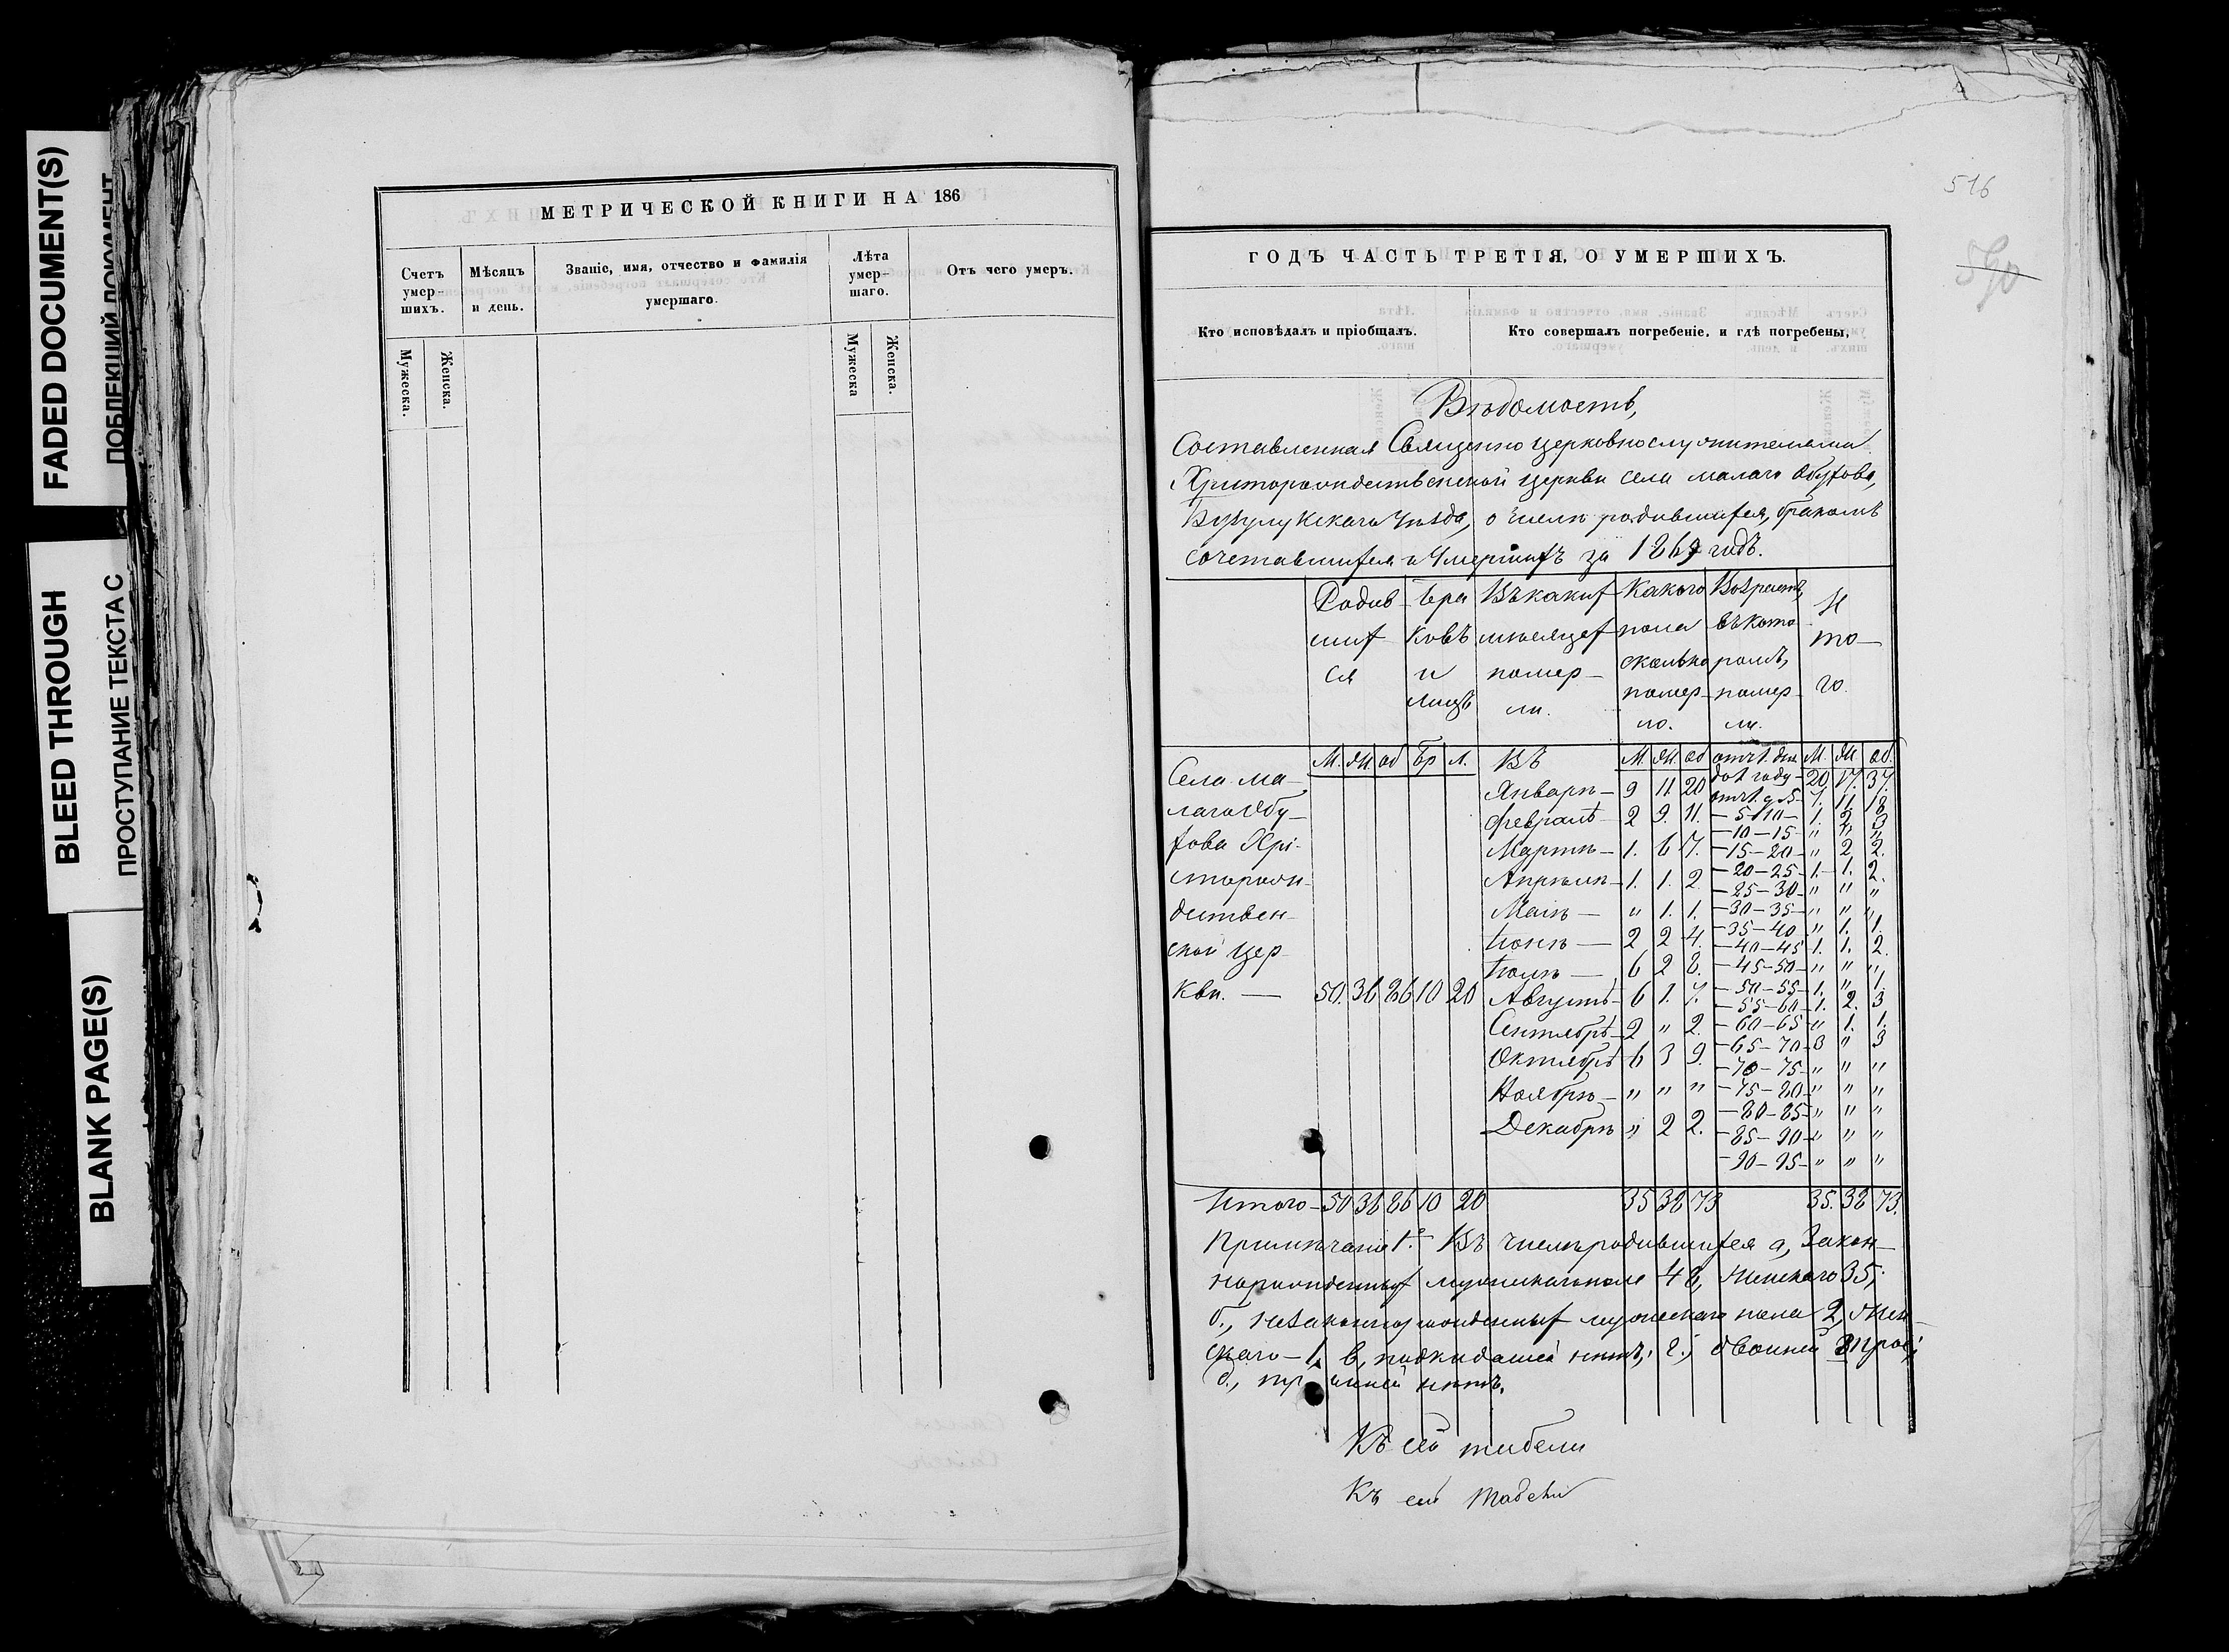 FADED DOCUMENT(S)
ПОБЛЕКШИЙ ДОКУМЕНТ
BLEED THROUGH
ПРОСТУПАНИЕ ТЕКСТА С
BLANK PAGE(S)
МЕТРИЧЕСКОЙ КНИГИ НА 186
Счетъ умер-шихъ.
Мѣсяцъ и день.
Званіе, имя, отчество и фамилія умершаго.
Лѣта умер-шаго.
Отъ чего умеръ.
Мужеска.
Женска.
Мужеска
Женска.
516
590
ГОДЪ ЧАСТЬ ТРЕТІЯ, О УМЕРШИХЪ.
Кто исповѣдалъ и пріобщалъ.
Кто совершалъ погребеніе, и гдѣ погребены,
Вѣдомость,
Составленная Священно церковнослужителями
Христорождественской церкви села малаго
Бузулукскаго Уѣзда, о числѣ родившихся, бракомъ
сочетавшихся и Умершихъ за 1869 годъ.
Родив- Бра Въ какихъ Какого Возрастъ, И
шихъ ковъ мѣсяцехъ пола въ кото- то-
ся и помер- сколько ромъ, го.
лицъ ли. помер- помер-
ло. ли.
М. Ж. об Бр Л. Въ М. Ж. об отъ 1. дня М. Ж. об.
Села ма- Январѣ- 9 11. 20 до 1 году- 20. 17. 37.
отъ 1. д. 5- 7. 11. 18.
лаго Февралѣ- 2 9. 11. -5-10- 1. 2 3
-10-15- " " "
Хрі- Мартѣ- 1. 6 7. -15-20- " 2 2.
сторож- Апрѣлѣ- 1. 1. 2. -20-25- 1. 1. 2.
-25-30- " " "
дествен- Маіѣ- " 1. 1. -30-35- " " "
-35-40- " 1. 1.
ской цер- Іюнѣ- 2 2 4. -40-45- 1. 1. 2.
Іюлѣ- 6 2 8. -45-50- " " "
кви. - 50. 36 86 10 20 Августѣ- 6 1. 7. -50-55- 1. " 1.
-55-60- 1. 2. 3
Сентябрѣ- 2 " 2. -60-65- " 1. 1.
Октябрѣ 6 3 9. -65-70- 3 " 3
-70-75- " " "
Ноябрѣ- " " " -75-80- " " "
-80-85- " " "
Декабрѣ " 2 2. -85-90- " " "
-90-95- " " "
Итого- 50 36 86 10 20 35 38 73 35. 38 73.
Примѣчаніе 1.е Въ числѣ родившихся а, Закон-
норожденныхъ мужескаго пола 48, Женскаго 35;
б., незаконнорожденныхъ мужескаго пола 2, Жен-
скаго-1, в, подкидышей нѣтъ; г., двойней
д., тройней нѣтъ.
Къ сей табели
Къ сей табели